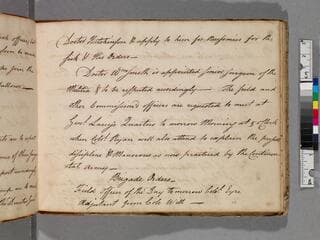 Doctor Hutchinson & apply to him for Necessaries for the
Sick & His Orders —
Doctor Wm Smith is appointed Senior Surgeon of the
Militia & to be respected accordingly — The field and
other Commissioned officers are requested to meet at
Genl Quarters to morrow Morning at 9 o Clock
when Colo. Ryan will also attend to explain the
Discipline & Manouvres as now practiced by the Continen-
tal Army —
Brigade Orders —
Field officer of the Day tomorrow Colo. Eyre
Adjutant from Colo Will —